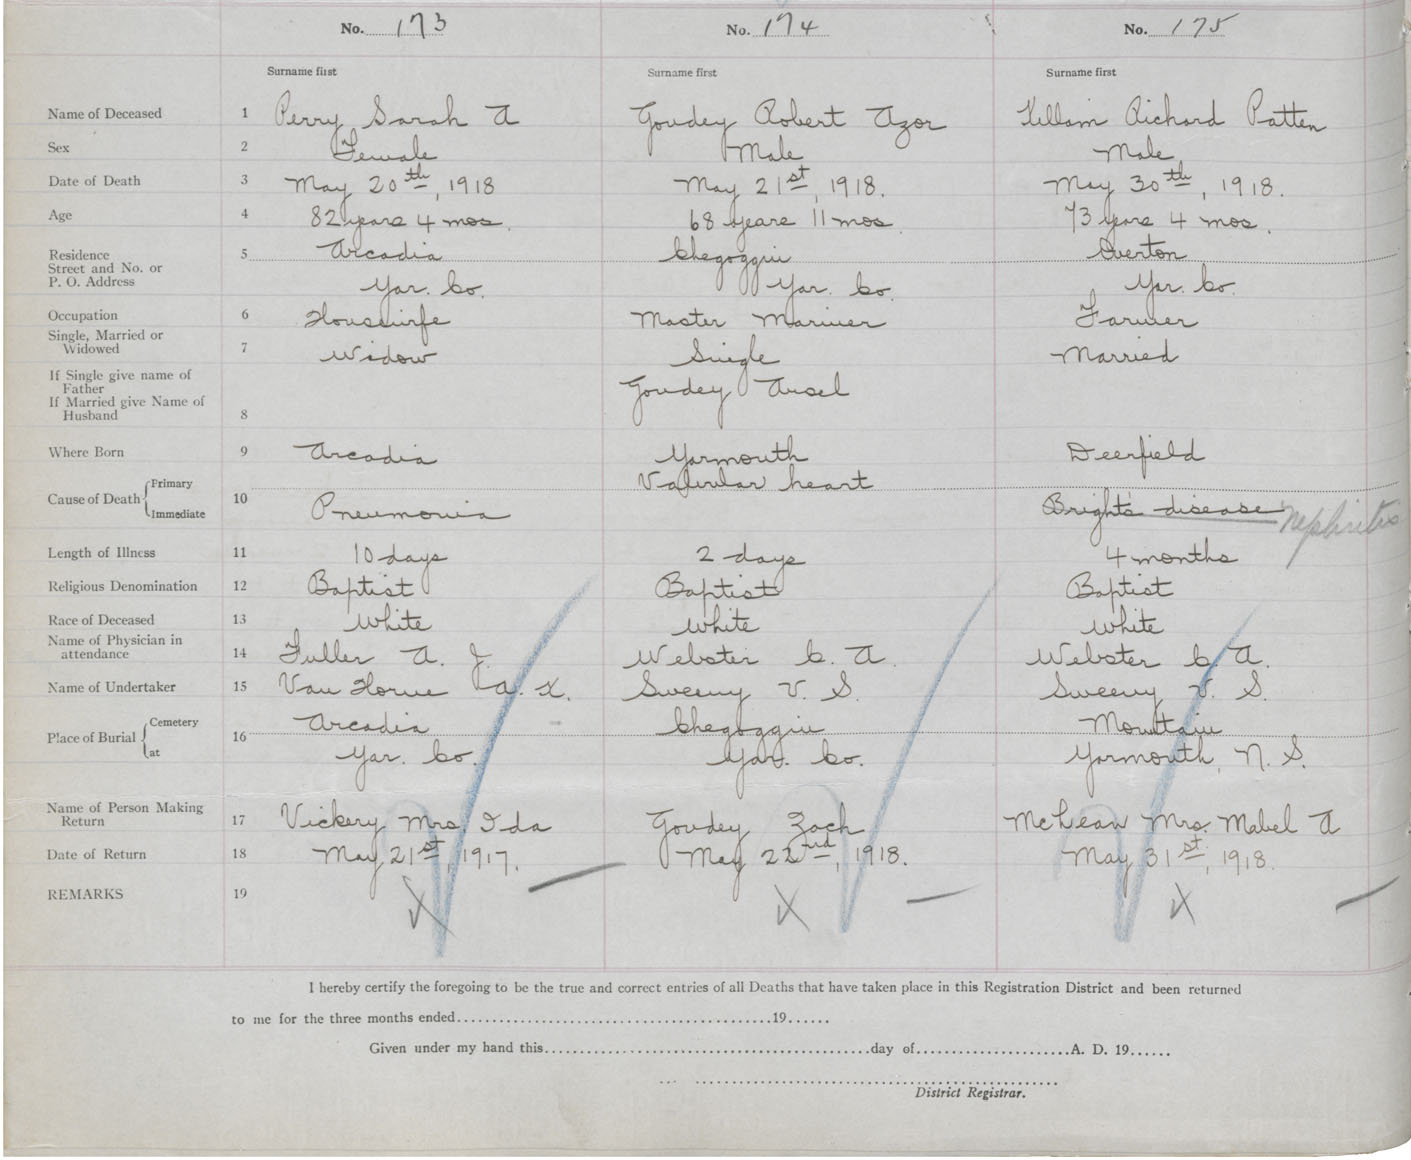 No. 173 No. 174 No. 175
Surname first Surname first Surname first
Name of Deceased 1 Perry Sarah A Goudey Robert Azor Killam Richard Patten
Sex 2 Female Male Male
Date of Death 3 May 20th, 1918 May 21st, 1918. May 30th, 1918.
Age 4 82 years 4 mos. 68 years 11 mos. 73 years 4 mos.
Residence 5 Arcadia Chegoggin Overton
Street and No. or
P. O. Address Yar. Co. Yar. Co. Yar. Co.
Occupation 6 Housewife Master Mariner Farmer
Single, Married or
Widowed 7 Widow Single Married
If Single give name of
Father Goudey Ansel
If Married give Name of
Husband 8
Where Born 9 Arcadia Yarmouth Deerfield
Primary Valvular heart
Cause of Death 10
Immediate Pneumonia Brights disease nephritis
Length of Illness 11 10 days 2 days 4 months
Religious Denomination 12 Baptist Baptist Baptist
Race of Deceased 13 White White White
Name of Physician in
attendance 14 Fuller A. J. Webster C. A. Webster C. A.
Name of Undertaker 15 Van Horne A. K. Sweeny V. S. Sweeny V. S.
Cemetery Arcadia Chegoggin Mountain
Place of Burial 16
at Yar. Co. Yar. Co. Yarmouth, N. S.
Name of Person Making
Return 17 Vickery Mrs. Ida Goudey Zach McLean Mrs. Mabel A
Date of Return 18 May 21st, 1917. May 22nd, 1918. May 31st, 1918.
REMARKS 19 X X X
I hereby certify the foregoing to be the true and correct entries of all Deaths that have taken place in this Registration District and been returned
to me for the three months ended........................................19......
Given under my hand this........................................day of......................A. D. 19......
District Registrar.